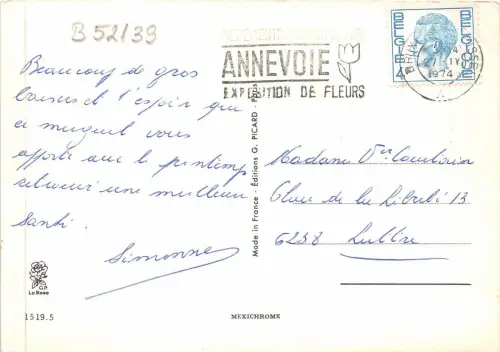 B 52/39
ANNEVOIE
EXPOSITION DE FLEURS
BELGIE
BELGIQUE
1974
Beaucoup de gros
baisers et l'espoir que
ce muguet vous
apporte avec le printemps
retrouvé une meilleure
santé.
Simonne
Madame Vve
Place de la Liberté 13
6238 Luttre
Made in France - Editions G. PICARD - Paris
G.P.
La Rose
1519.5
MEXICHROME